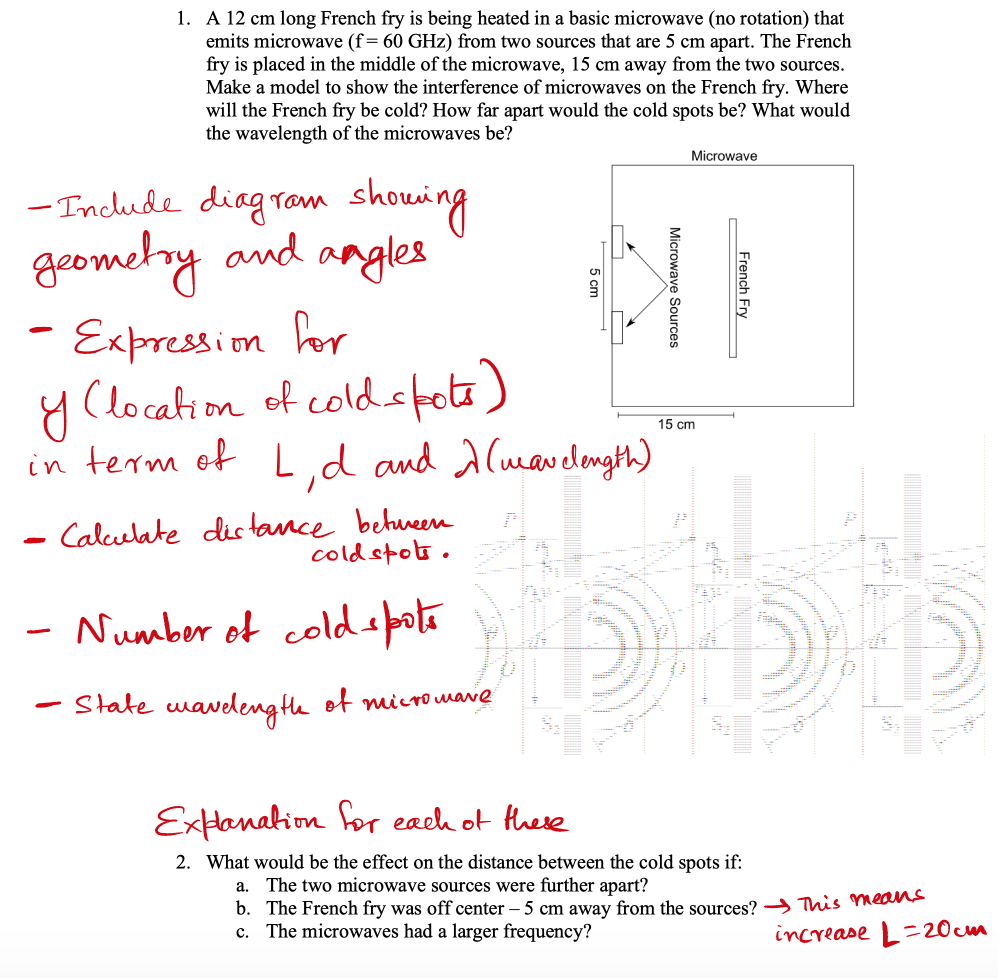 1. A 12 cm long French fry is being heated in a basic microwave (no rotation) that
emits microwave (f = 60 GHz) from two sources that are 5 cm apart. The French
fry is placed in the middle of the microwave, 15 cm away from the two sources.
Make a model to show the interference of microwaves on the French fry. Where
will the French fry be cold? How far apart would the cold spots be? What would
the wavelength of the microwaves be?
Microwave
- Include diagram showing
geometry and angles
5 cm
Microwave Sources
French Fry
- Expression for
y (location of cold spots)
15 cm
in term of L, d and λ (wavelength)
- Calculate distance between
cold spots.
- Number of cold spots
- State wavelength of microwave
Explanation for each of these
2. What would be the effect on the distance between the cold spots if:
a. The two microwave sources were further apart?
b. The French fry was off center – 5 cm away from the sources? → This means
increase L = 20 cm
c. The microwaves had a larger frequency?